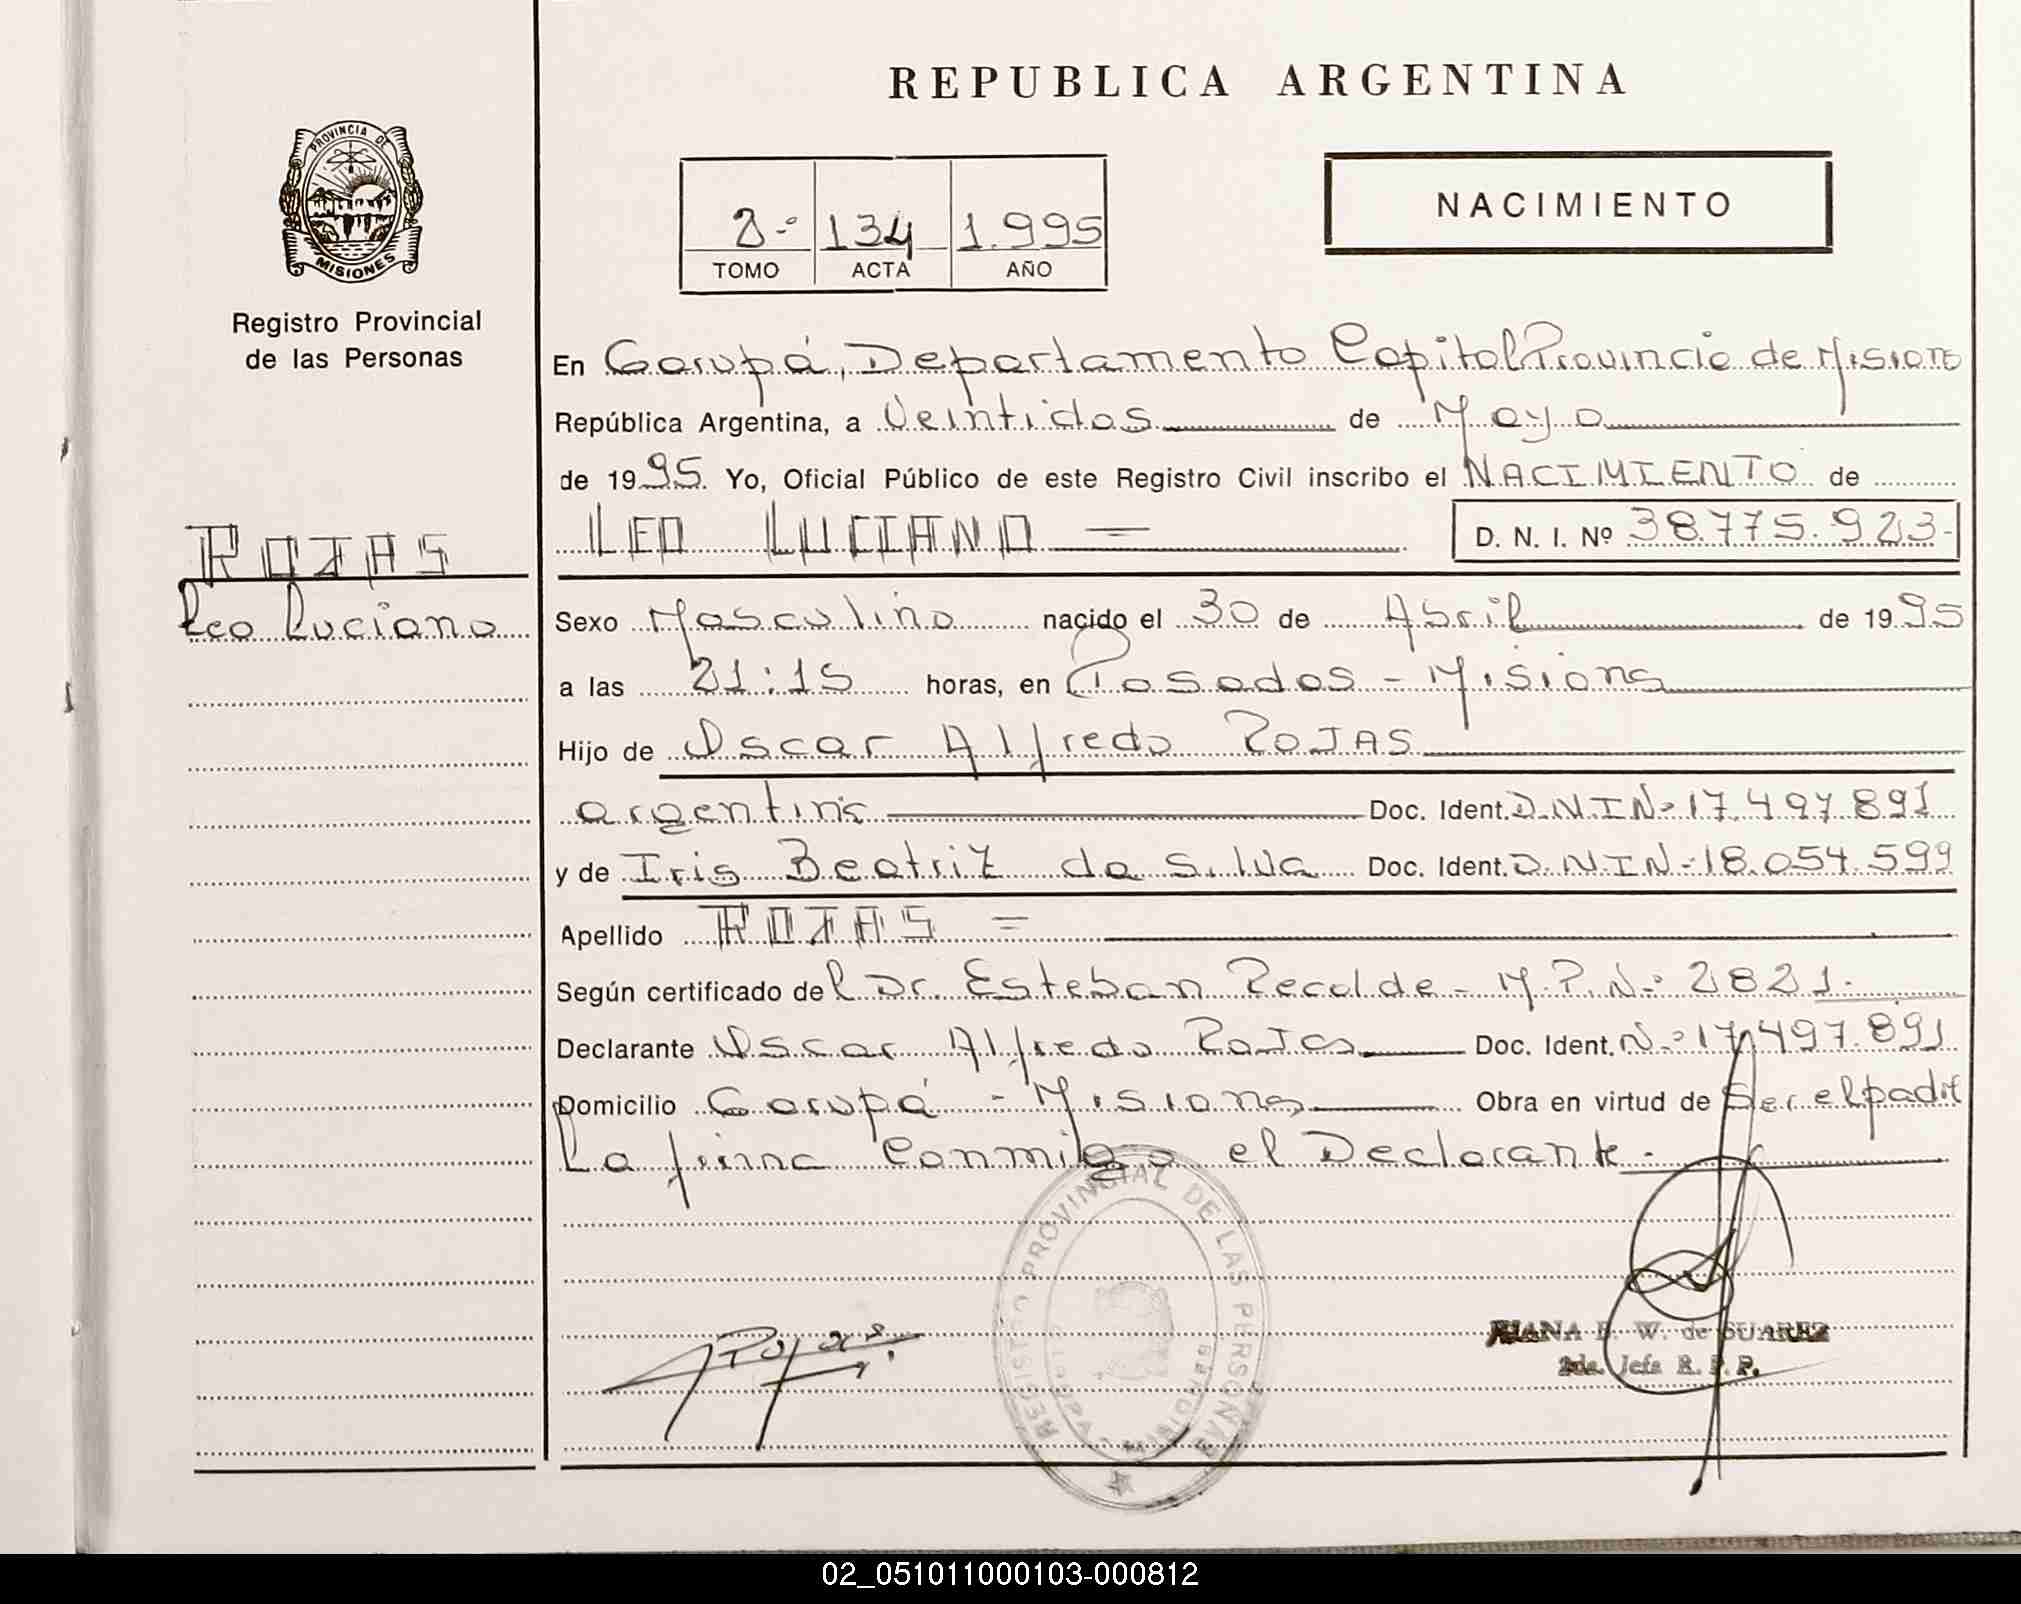 REPUBLICA ARGENTINA
PROVINCIA DE
MISIONES
Registro Provincial
de las Personas
2º 134 1.995
TOMO ACTA AÑO
NACIMIENTO
En Garupá, Departamento Capital Provincia de Misiones
República Argentina, a Veintidos de Mayo
de 1995 Yo, Oficial Público de este Registro Civil inscribo el NACIMIENTO de
LEO LUCIANO = D. N. I. Nº 38.775.923-
ROJAS
Leo Luciano
Sexo Masculino nacido el 30 de Abril de 1995
a las 21:15 horas, en Posadas - Misiones
Hijo de Oscar Alfredo ROJAS
argentino Doc. Ident. D.N.I Nº 17.497.891
y de Iris Beatriz da Silva Doc. Ident. D.N.I Nº 18.054.599
Apellido ROJAS =
Según certificado del Dr. Esteban Recalde - M.P. Nº 2821.
Declarante Oscar Alfredo Rojas Doc. Ident. Nº 17.497.891
Domicilio Garupá - Misiones Obra en virtud de Ser el padre
La firma Conmigo el Declarante.-
REGISTRO PROVINCIAL DE LAS PERSONAS
GARUPA - MISIONES
Rojas
W. de SUAREZ
Jefa R. P. P.
02_051011000103-000812